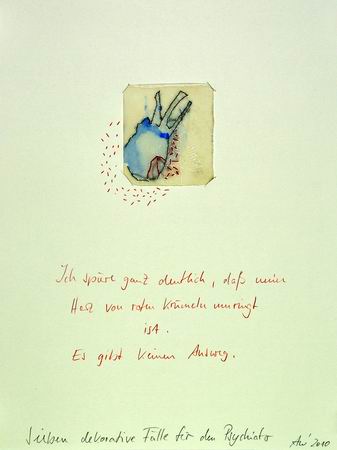 Ich spüre ganz deutlich, daß mein
Herz von roten Krümeln umringt
ist.
Es gibt keinen Ausweg.
Sieben dekorative Fälle für den Psychiater 2010